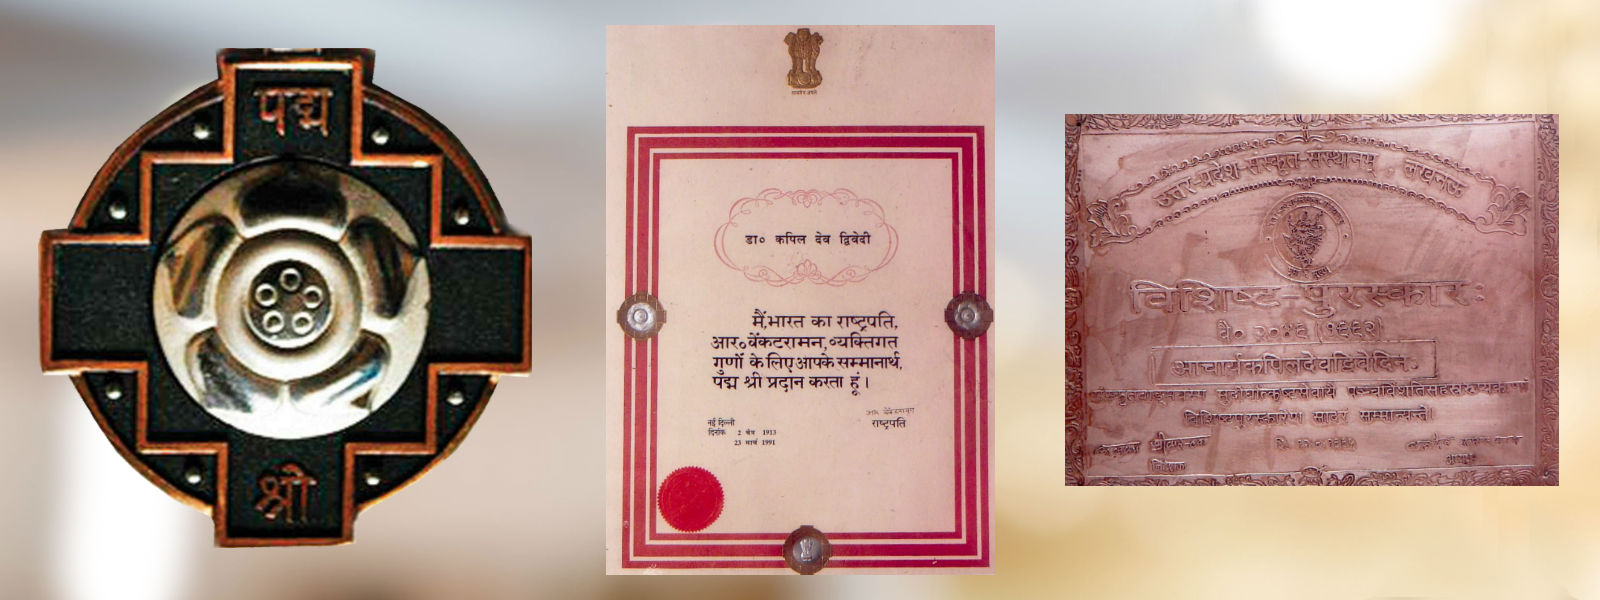 पद्म
श्री
सत्यमेव जयते
डा० कपिल देव द्विवेदी
मैं, भारत का राष्ट्रपति,
आर० वेंकटरामन, व्यक्तिगत
गुणों के लिए आपके सम्मानार्थ,
पद्म श्री प्रदान करता हूं।
नई दिल्ली
दिनांक 2 चैत्र 1913
23 मार्च 1991
राष्ट्रपति
उत्तर-प्रदेश-संस्कृत-संस्थानम्, लखनऊ
विशिष्ट-पुरस्कारः
वै० २०४९ (१९९२)
आचार्यकपिलदेवद्विवेदिनः
विशिष्टपुरस्कारेण सादरं सम्मान्यन्ते।
निदेशक